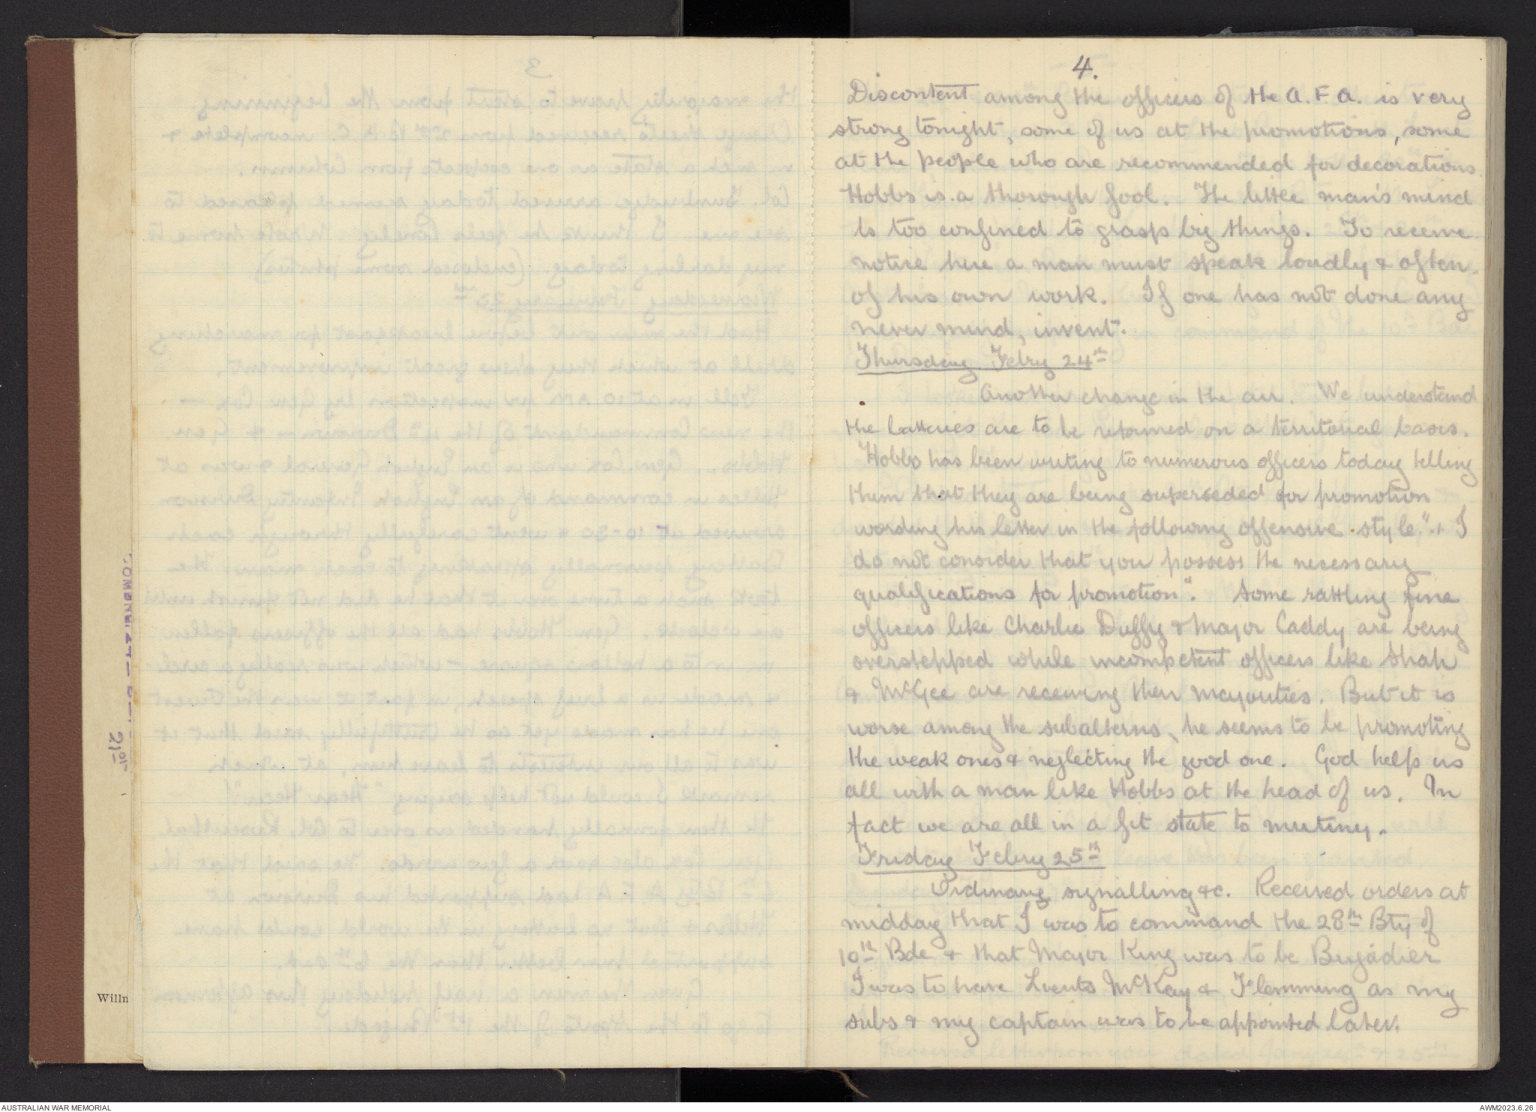 4.
Discontent among the officers of the A.F.A. is very
strong tonight, some of us at the promotions, some
at the people who are recommended for decorations.
Hobbs is a thorough fool. The little man's mind
is too confined to grasp big things. To receive
notice here a man must speak loudly & often
of his own work. If one has not done any
never mind, invent.
Thursday Febry 24th
Another change in the air. We understand
the batteries are to be reformed on a territorial basis.
Hobbs has been writing to numerous officers today telling
them that they are being superseded for promotion
wording his letter in the following offensive style "I
do not consider that you possess the necessary
qualifications for promotion". Some rattling fine
officers like Charlie Duffy & Major Caddy are being
overstepped while incompetent officers like
& McGee are receiving their majorities. But it is
worse among the subalterns, he seems to be promoting
the weak ones & neglecting the good one. God help us
all with a man like Hobbs at the head of us. In
fact we are all in a fit state to mutiny.
Friday Febry 25th
Ordinary signalling &c. Received orders at
midday that I was to command the 28th Bty of
10th Bde & that Major King was to be Brigadier
I was to have Lieuts McKay & Flemming as my
subs & my captain was to be appointed later.
Willn
AUSTRALIAN WAR MEMORIAL
AWM2023.6.26